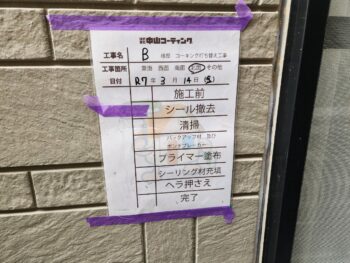 株式会社 中山コーティング
工事名 B 様邸 コーキング打ち替え工事
工事箇所 東面 西面 南面 北面 その他
日付 R7年 3月 14日
施工前
シール撤去
清掃
バックアップ材 及び
ボンドブレーカー
プライマー塗布
シーリング材充填
ヘラ押さえ
完了